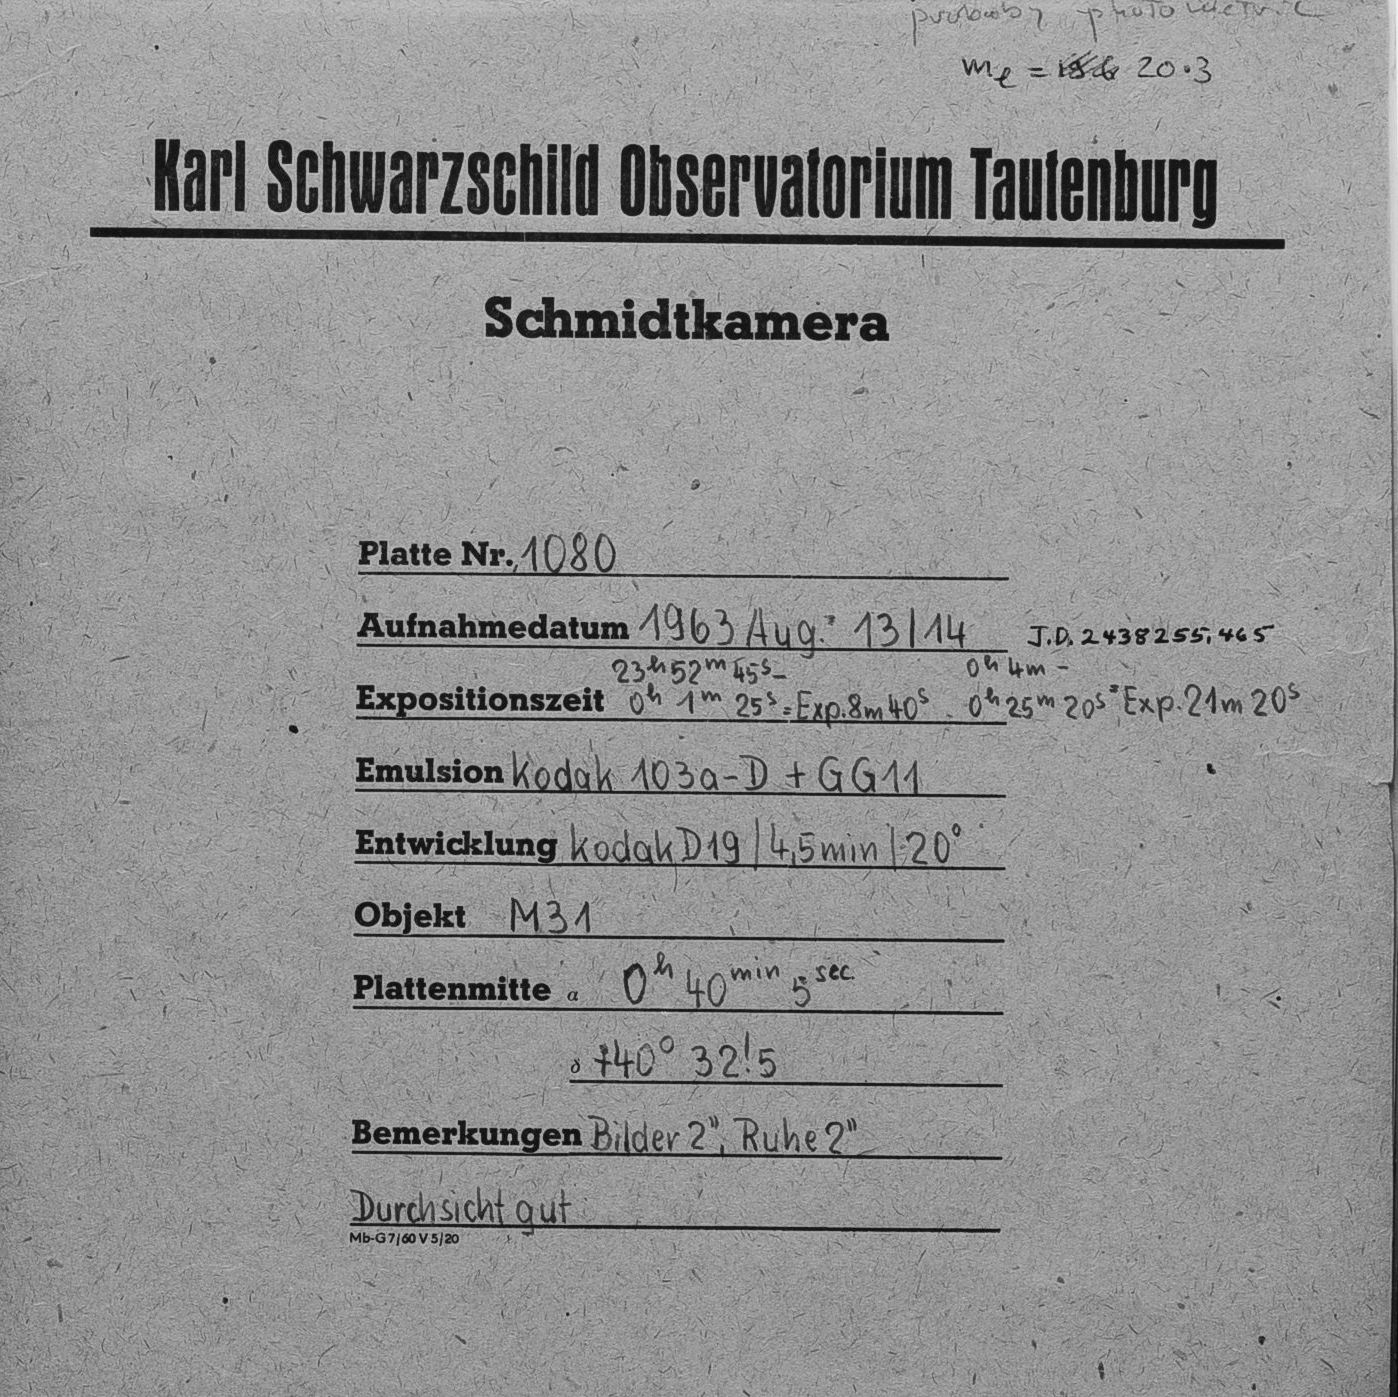 probably photometric
m_l = 20.3
Karl Schwarzschild Observatorium Tautenburg
Schmidtkamera
Platte Nr. 1080
Aufnahmedatum 1963 Aug. 13/14 J.D. 2438255,465
23ʰ52ᵐ45ˢ– 0ʰ4m –
Expositionszeit 0ʰ 1ᵐ 25ˢ = Exp. 8m40ˢ 0ʰ25ᵐ20ˢ = Exp. 21m20ˢ
Emulsion Kodak 103a-D + GG11
Entwicklung Kodak D19 | 4,5min | 20°
Objekt M31
Plattenmitte α 0ʰ 40ᵐⁱⁿ 5ˢᵉᶜ
δ +40° 32!5
Bemerkungen Bilder 2", Ruhe 2"
Durchsicht gut
Mb-G 7/60 V 5/20